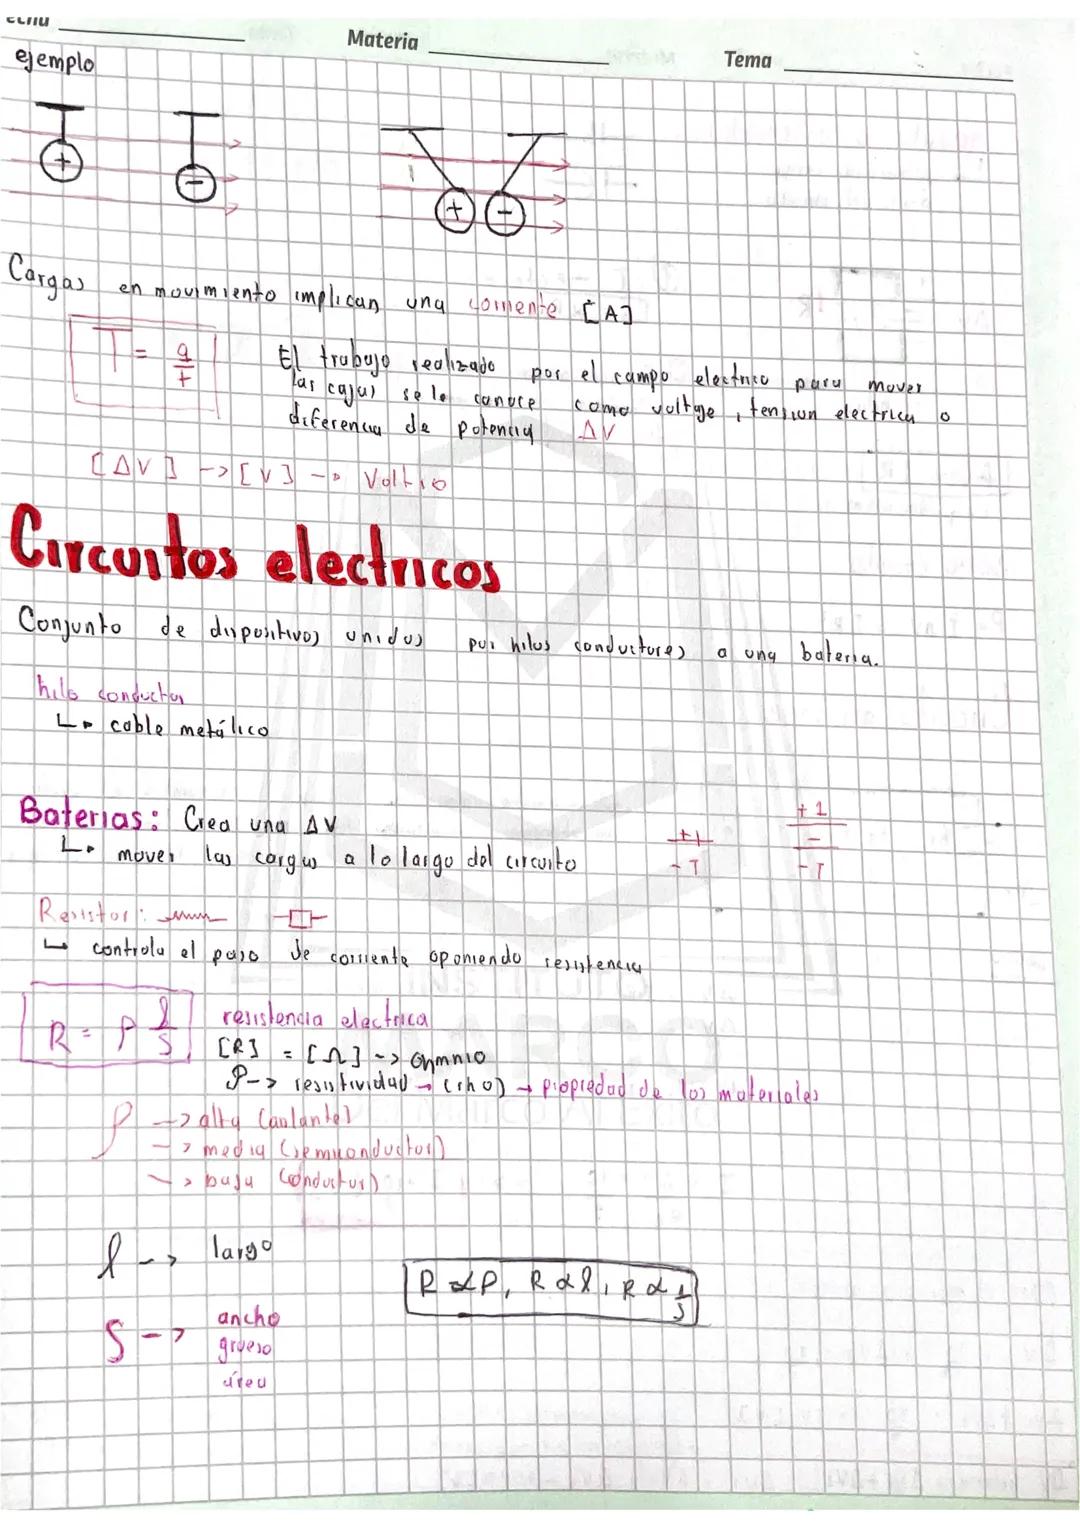 Materia
Tema
ejemplo
+ - + -
Cargas en movimiento implican una corriente [A]
I = q/t
El trabajo realizado por el campo electrico para mover
las cajas se le conoce como voltaje, tension electrica o
diferencia de potencia ΔV
[ΔV] -> [V] -> Voltio
Circuitos electricos
Conjunto de dispositivos unidos por hilos conductores a una bateria.
hilo conductor
↳ cable metálico
Baterias: Crea una ΔV
↳ mover las cargas a lo largo del circuito
Resistor:
↳ controla el paso de corriente oponiendo resistencia
R = ρ l/S
resistencia electrica
[R] = [Ω] -> Ohmnio
ρ -> resistividad → (rho) → propiedad de los materiales
ρ -> alta (aislante)
-> media (semiconductor)
-> baja (conductor)
l --> largo
R α ρ, R α l, R α 1/S
S --> ancho
grueso
área